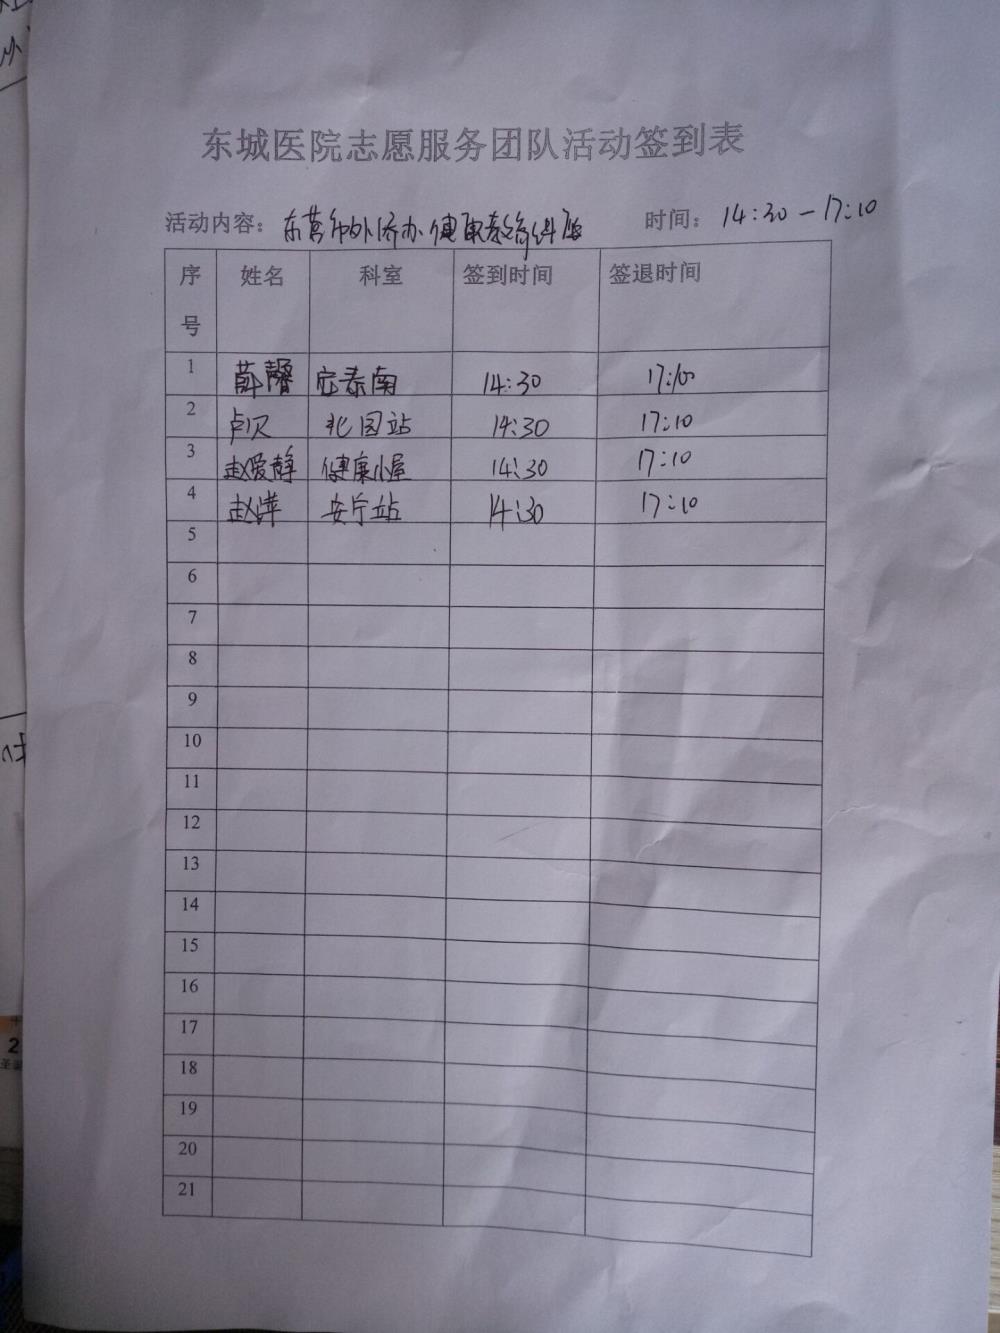 东城医院志愿服务团队活动签到表
活动内容：东营市外侨办健康教育 时间：14:30-17:10
序号 姓名 科室 签到时间 签退时间
1 薛馨 泰南 14:30 17:10
2 卢贝 北园站 14:30 17:10
3 赵爱静 健康小屋 14:30 17:10
4 赵萍 安宁站 14:30 17:10
5
6
7
8
9
10
11
12
13
14
15
16
17
18
19
20
21
2